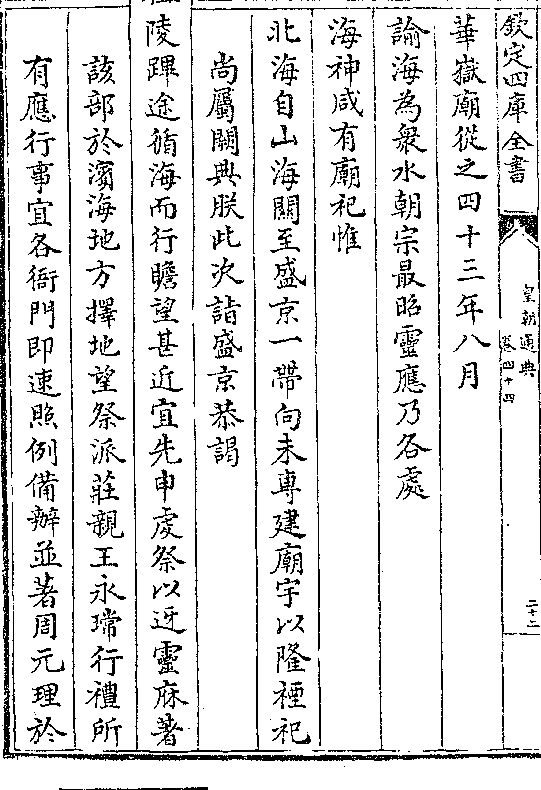 欽定四庫全書
皇朝通典
卷四十四
二十二
華嶽廟從之四十三年八月
諭海為衆水朝宗最昭靈應乃各處
海神咸有廟祀惟
北海自山海關至盛京一帶向未專建廟宇以隆禋祀
尚屬闕典朕此次詣盛京恭謁
陵蹕途循海而行瞻望甚近宜先申虔祭以迓靈庥著
該部於濱海地方擇地望祭派莊親王永瑺行禮所
有應行事宜各衙門即速照例備辦並著周元理於